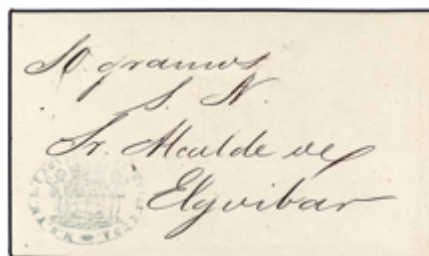 10 gramos
S. N.
Sr. Alcalde de
Elgoibar